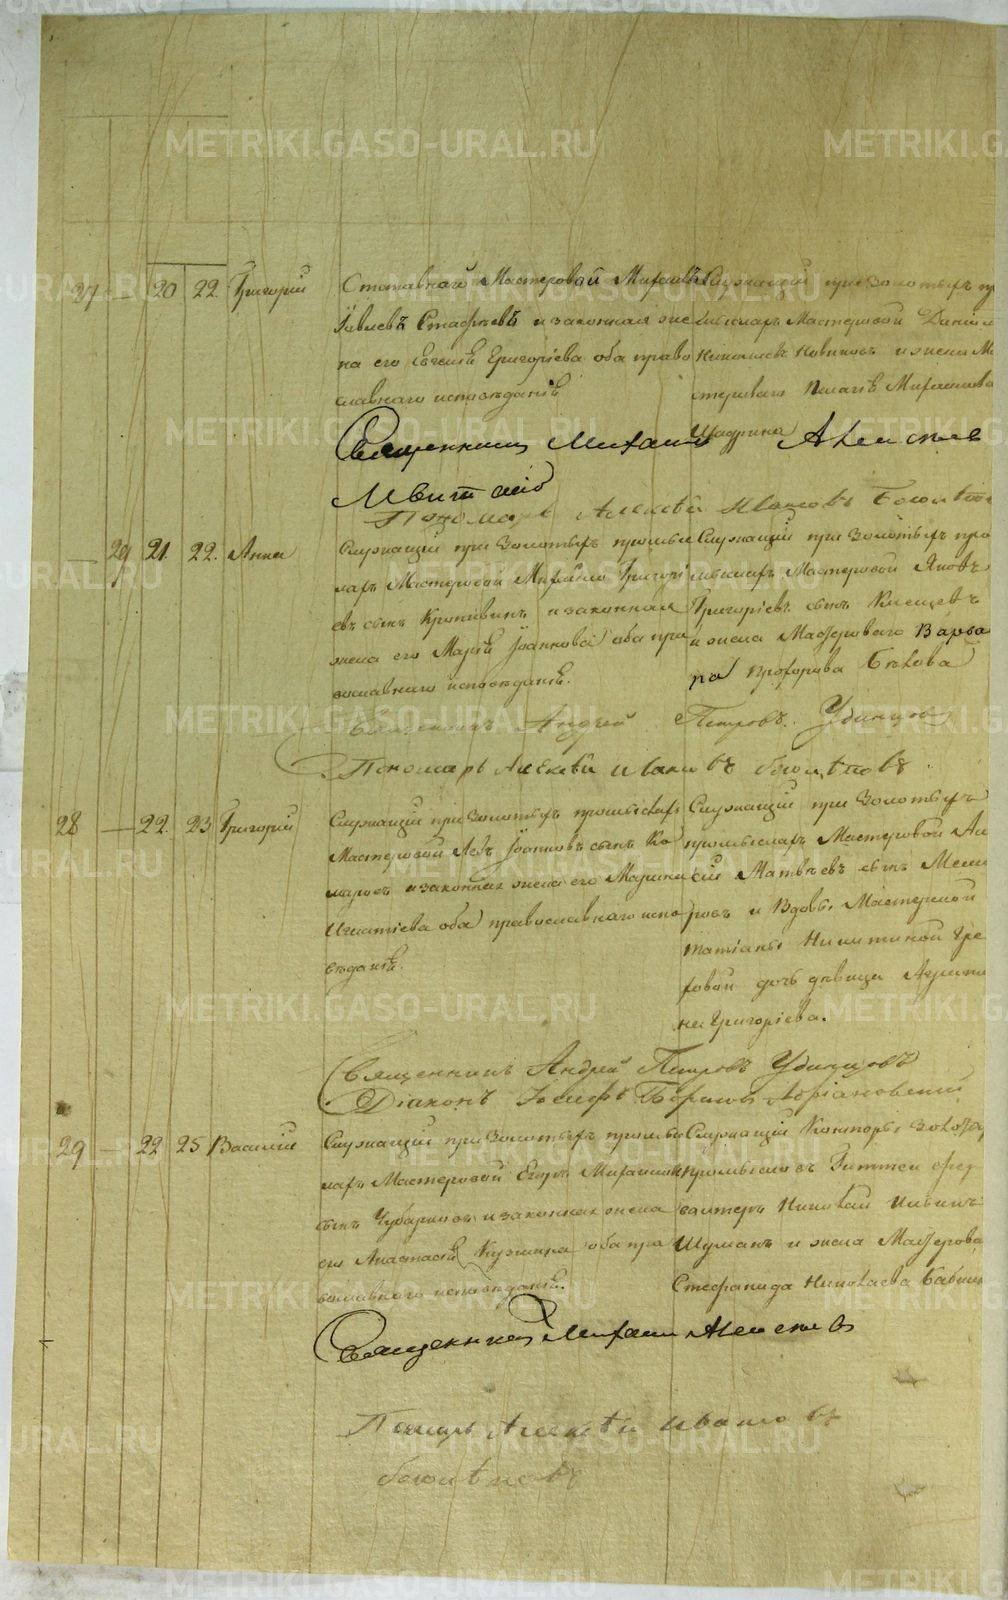 METRIKI.GASO-URAL.RU
27 — 20 22 Григорий
Отставной Мастеровой Михаилъ
Іевлевъ Стафѣевъ и законная же
на его Евгенія Григоріева оба право
славнаго исповѣданія
Служащій при Золотыхъ пр
мыслахъ Мастеровой Данiил
Николаевъ Новиковъ и жена Ма
стероваго Пелагея Михаилова
Шадрина
Священникъ Михаилъ Алексѣев
Пономарь Алексѣй Ивановъ
— 29 21. 22. Анна
Служащій при Золотыхъ промыс
лахъ Мастеровой Михайло Григорі
евъ сынъ Кропивинъ и законная
жена его Марія Іоаннова оба пра
вославнаго исповѣданія.
Служащій при Золотыхъ про
мыслахъ Мастеровой Яковъ
Григоріевъ сынъ Клещевъ
и жена Мастероваго Варва
ра Прохорова Бѣлова
Священникъ Андрей Петровъ Удинцовъ
Пономарь Алексѣй Ивановъ
28 — 22. 23 Григорий
Служащій при Золотыхъ промыслахъ
Мастеровой Левъ Іоанновъ сынъ Ко
маровъ и законная жена его Марина
Игнатіева оба православнаго испо
вѣданія.
Служащій при Золотыхъ
промыслахъ Мастеровой Ал
сій Матвѣевъ сынъ
ровъ и Вдовы Мастерской
татіаны Никитиной Гре
ховой дочь дѣвица Агрипи
на Григоріева.
Священникъ Андрей Петровъ Удинцовъ
Діаконъ Іосифъ Борисовъ Адріановский
29 — 22 25 Василій
Служащій при Золотыхъ промыс
лахъ Мастеровой Егоръ Михайловъ
сынъ Чубаровъ и законная жена
его Анастасія Кузмина оба пра
вославнаго исповѣданія.
Служащій Конторы Золотых
промысловъ
Николай Ильинъ
Шуманъ и жена Мастерова
Стефанида Николаева Бабин
Священникъ Михаилъ Алексѣевъ
Пономарь Алексѣй Ивановъ